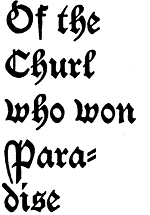 Of the
Churl
who won
Para=
dise